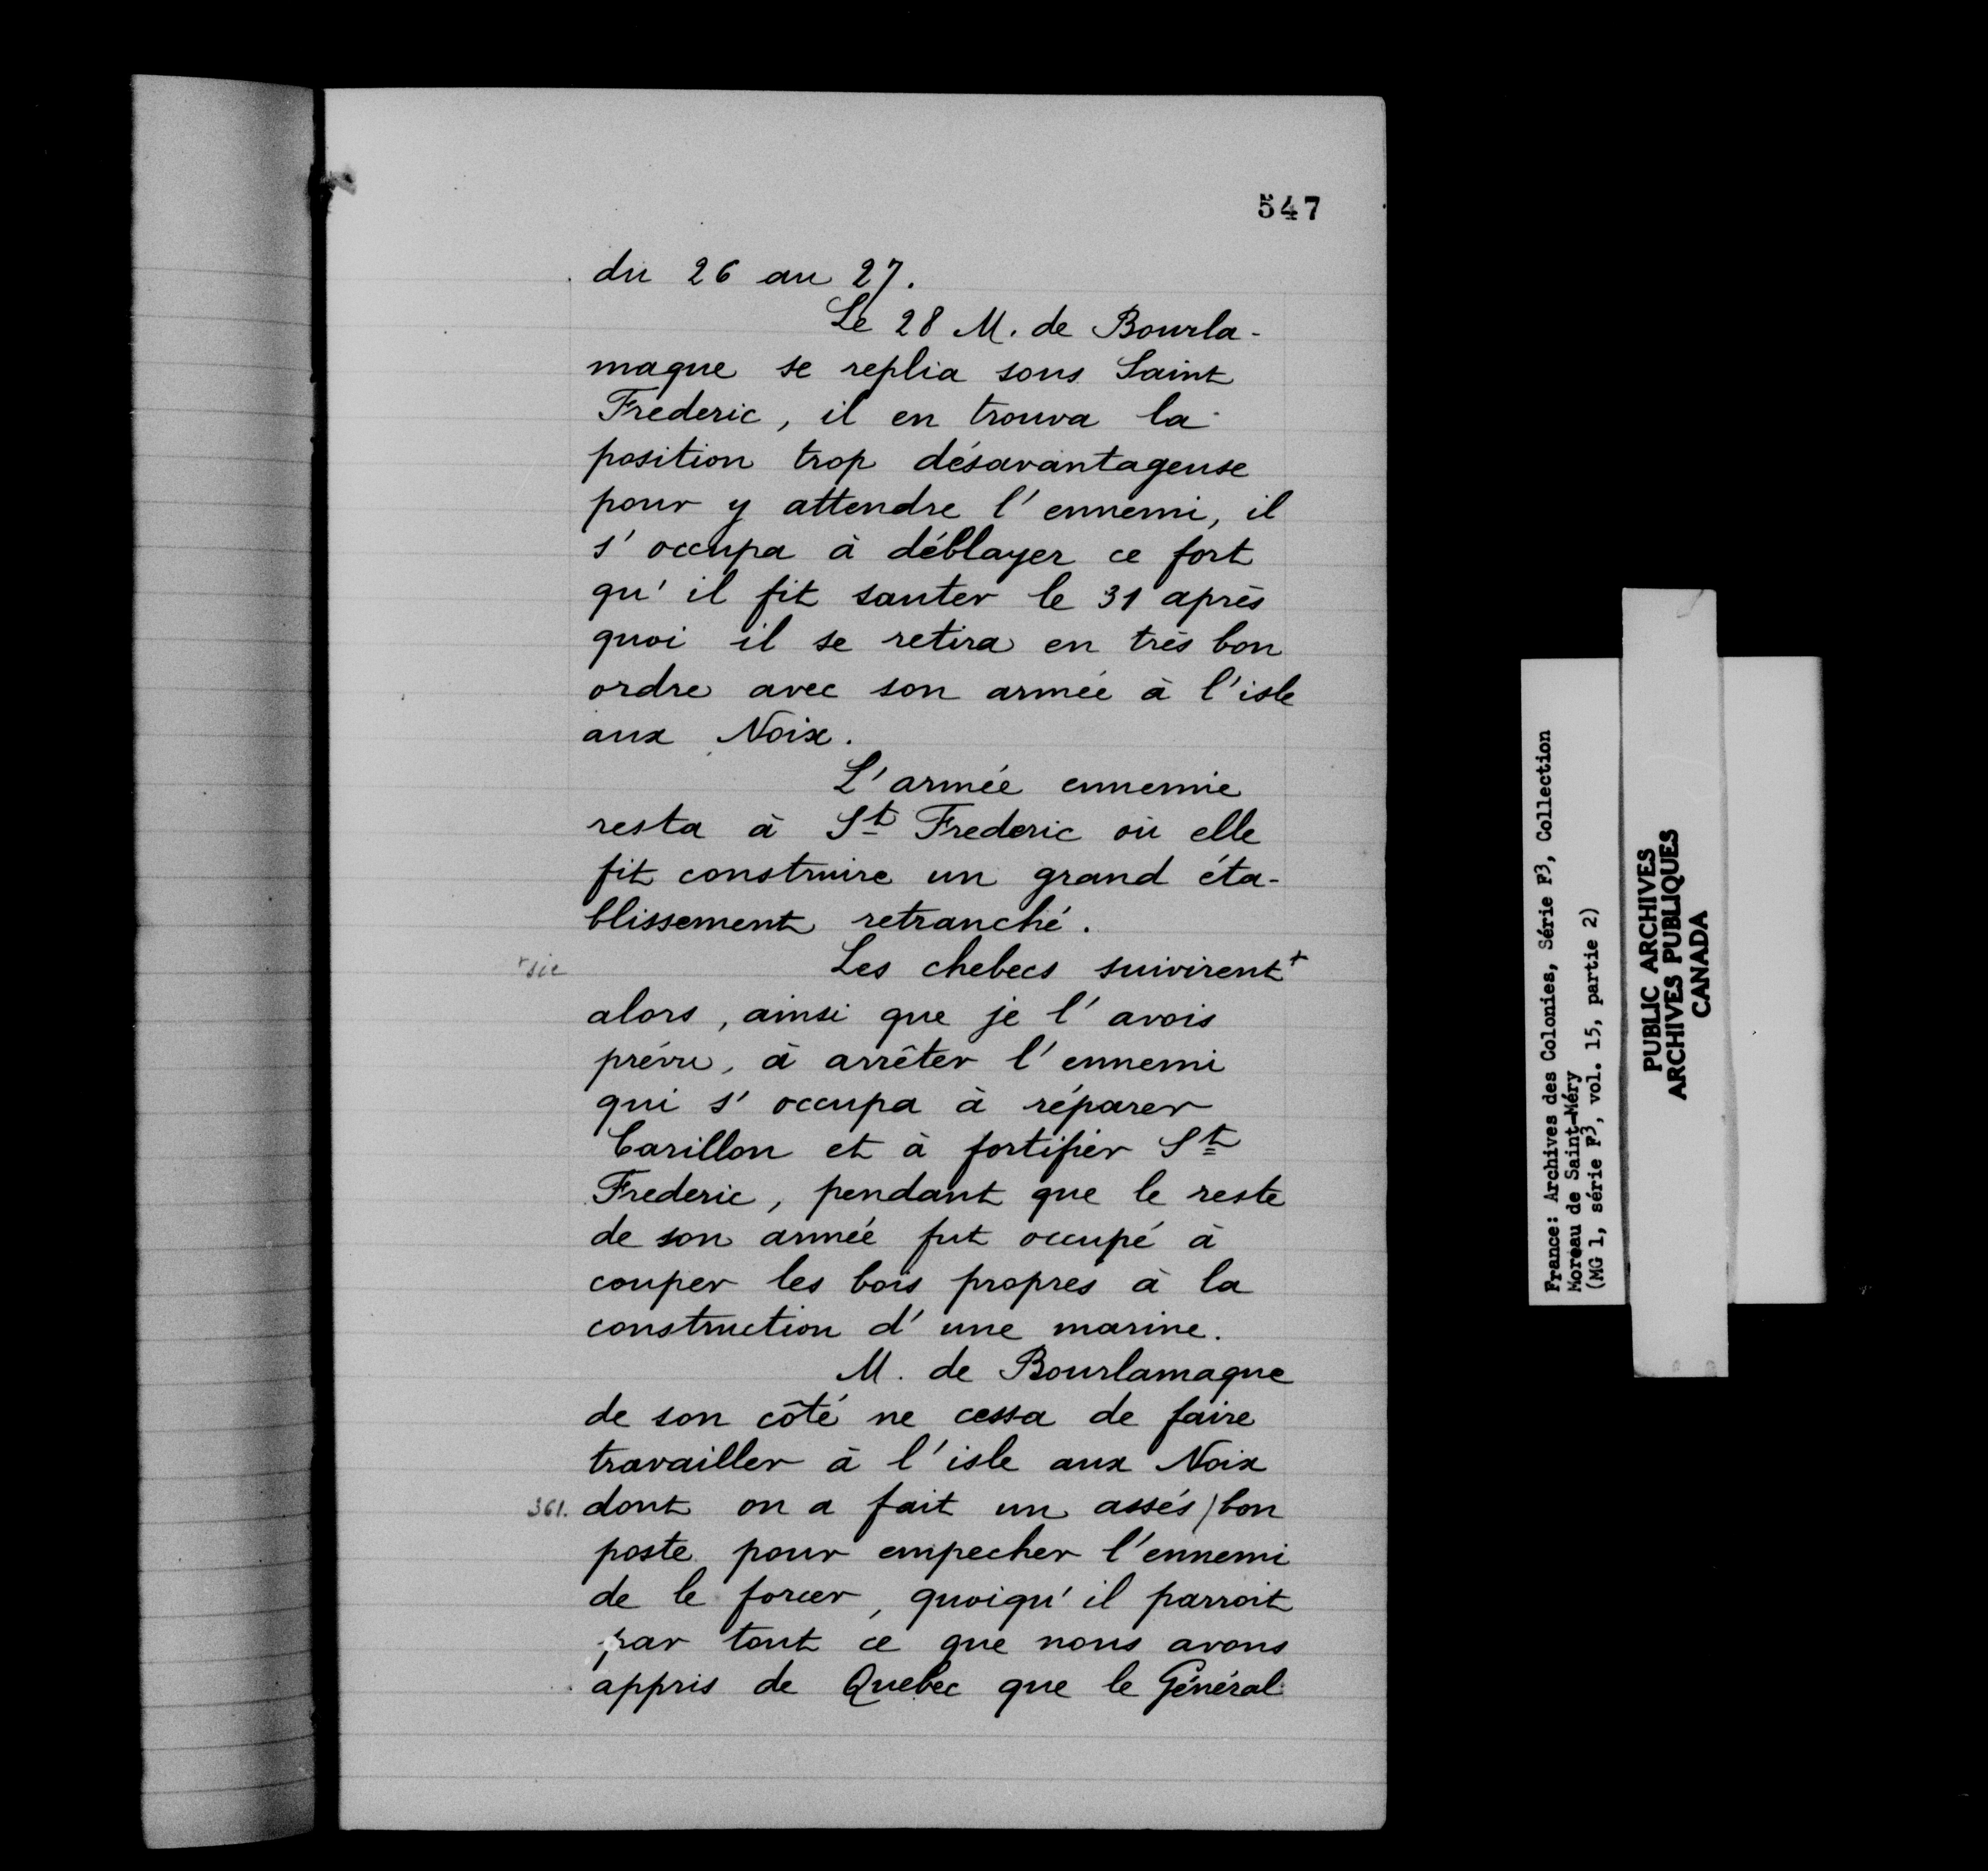 547
du 26 au 27.
Le 28 M. de Bourla-
maque se replia sous Saint
Frederic, il en trouva la
position trop désavantageuse
pour y attendre l'ennemi, il
s'occupa à déblayer ce fort
qu'il fit sauter le 31 après
quoi il se retira en très bon
ordre avec son armée à l'isle
aux Noix.
L'armée ennemie
resta à St Frederic où elle
fit construire un grand éta-
blissement retranché.
+sic
Les chebecs suivirent+
alors, ainsi que je l'avois
prévu, à arrêter l'ennemi
qui s'occupa à réparer
Carillon et à fortifier St
Frederic, pendant que le reste
de son armée fut occupé à
couper les bois propres à la
construction d'une marine.
M. de Bourlamaque
de son côté ne cessa de faire
travailler à l'isle aux Noix
361. dont on a fait un assés/bon
poste pour empecher l'ennemi
de le forcer, quoiqu'il parroit
par tout ce que nous avons
appris de Quebec que le Général
France: Archives des Colonies, Série F3, Collection
Moreau de Saint-Méry
(MG 1, série F3, vol. 15, partie 2)
PUBLIC ARCHIVES
ARCHIVES PUBLIQUES
CANADA